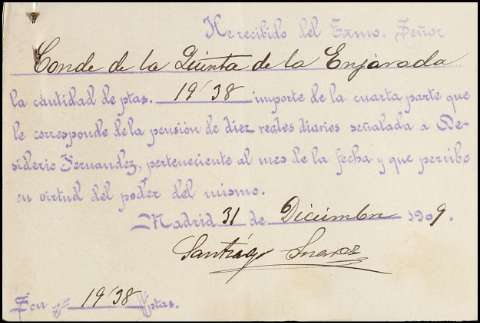 He recibido del Exmo. Señor
Conde de la Quinta de la Enjarada
la cantidad de ptas. 19'38 importe de la cuarta parte que
le corresponde de la pension de diez reales diarios señalada a De-
siderio Fernandez, perteneciente al mes de la fecha y que percibo
en virtud del poder del mismo.
Madrid 31 de Diciembre 1909.
Santiago Suarez
Son 19'38 ptas.